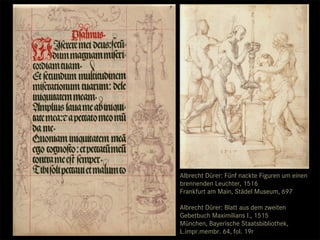 Psalmus.
Miserere mei deus: secū⸗
dum magnam miseri
cordiam tuam.
Et secundum multitudinem
miserationum tuarum: dele
iniquitatem meam.
Amplius laua me ab iniqui⸗
tate mea: et a peccato meo mū
da me.
Quoniam iniquitatem meā
ego cognosco: et peccatū meū
contra me est semper.
Tibi soli peccaui et malum co
Albrecht Dürer: Fünf nackte Figuren um einen
brennenden Leuchter, 1516
Frankfurt am Main, Städel Museum, 697
Albrecht Dürer: Blatt aus dem zweiten
Gebetbuch Maximilians I., 1515
München, Bayerische Staatsbibliothek,
L.impr.membr. 64, fol. 19r